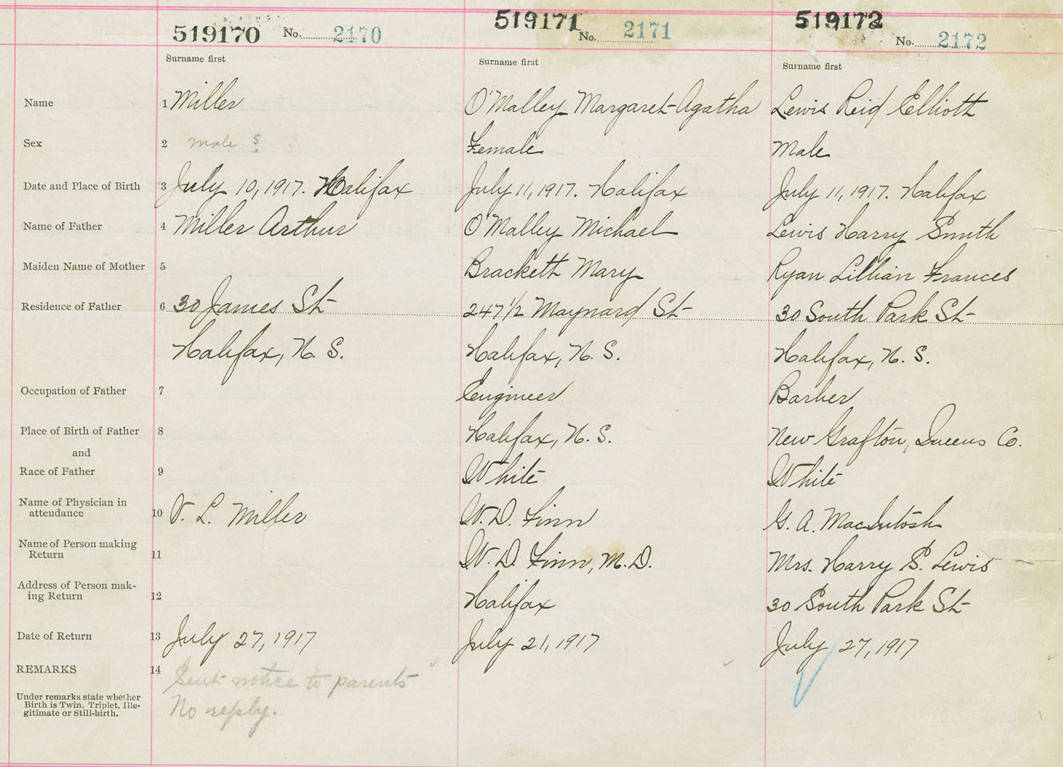 519170 No. 2170
519171 No. 2171
519172 No. 2172
Surname first
Surname first
Surname first
Name 1 Miller O'Malley Margaret Agatha Lewis Reid Elliott
Sex 2 male s Female Male
Date and Place of Birth 3 July 10, 1917. Halifax July 11, 1917. Halifax July 11, 1917. Halifax
Name of Father 4 Miller Arthur O'Malley Michael Lewis Harry Smith
Maiden Name of Mother 5 Brackett Mary Ryan Lillian Frances
Residence of Father 6 30 James St 247 1/2 Maynard St 30 South Park St
Halifax, N. S. Halifax, N. S. Halifax, N. S.
Occupation of Father 7 Engineer Barber
Place of Birth of Father 8 Halifax, N. S. New Grafton, Queens Co.
and
Race of Father 9 White White
Name of Physician in
attendance 10 V. L. Miller W. D. Finn G. A. MacIntosh
Name of Person making
Return 11 W. D. Finn, M. D. Mrs. Harry S. Lewis
Address of Person mak-
ing Return 12 Halifax 30 South Park St
Date of Return 13 July 27, 1917 July 21, 1917 July 27, 1917
REMARKS 14 Sent notice to parents
Under remarks state whether
Birth is Twin, Triplet, Ille-
gitimate or Still-birth.
No reply.